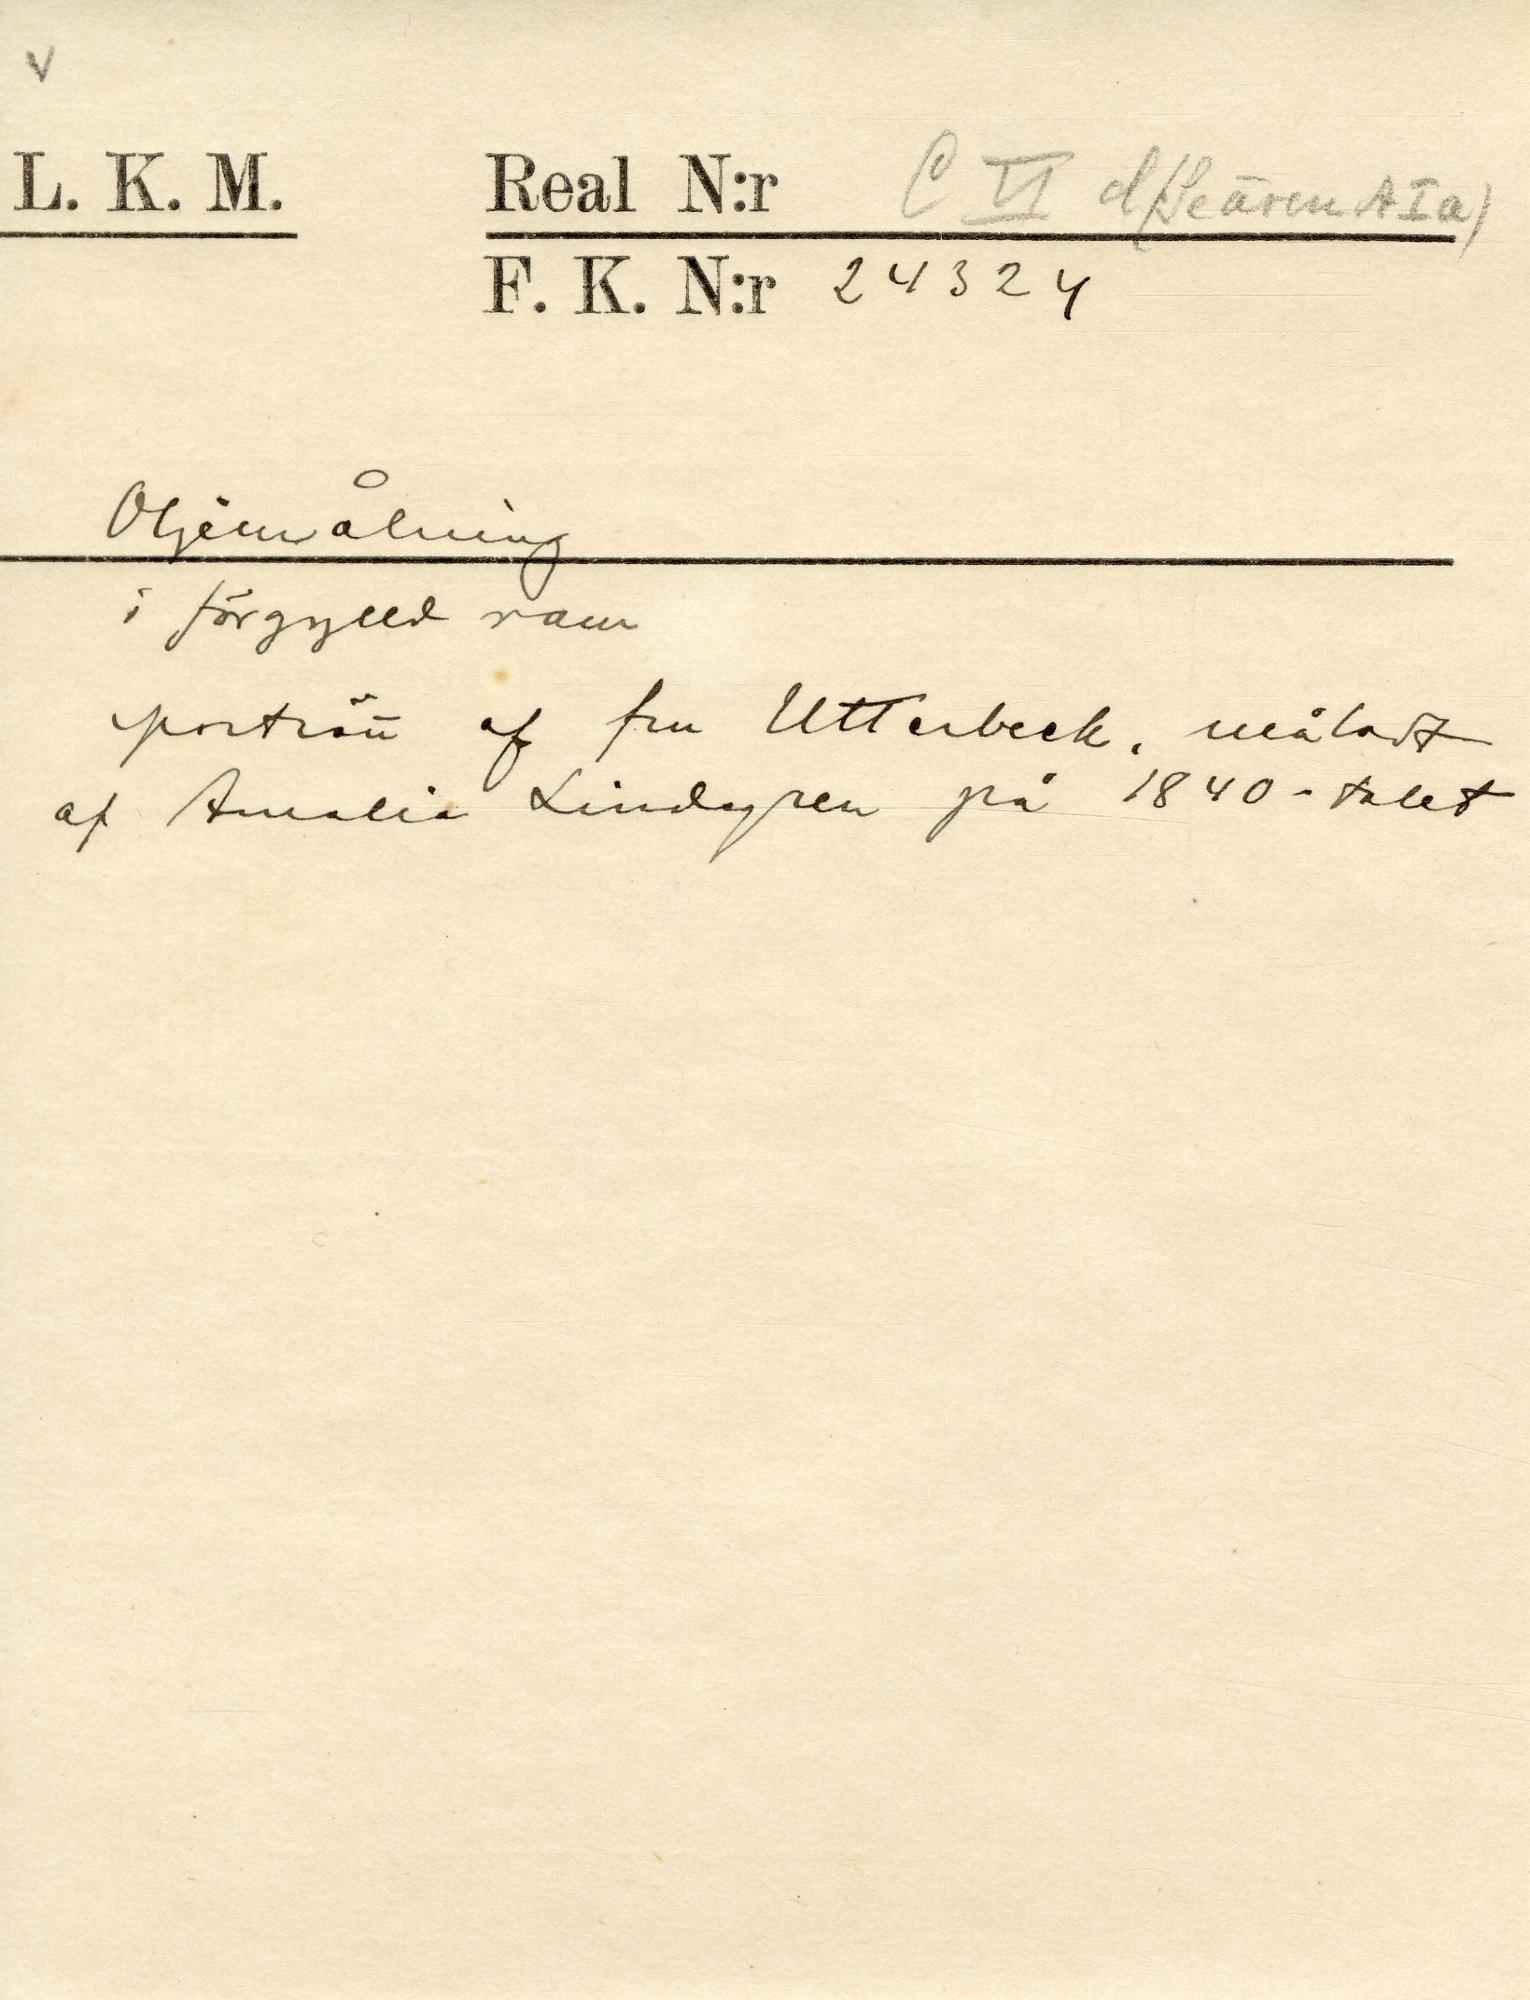 v
L. K. M. Real N:r C VI d (även A I a)
F. K. N:r 24324
Oljemålning
i förgylld ram
porträtt af fru Utterbeck, måladt
af Amalia Lindgren på 1840-talet